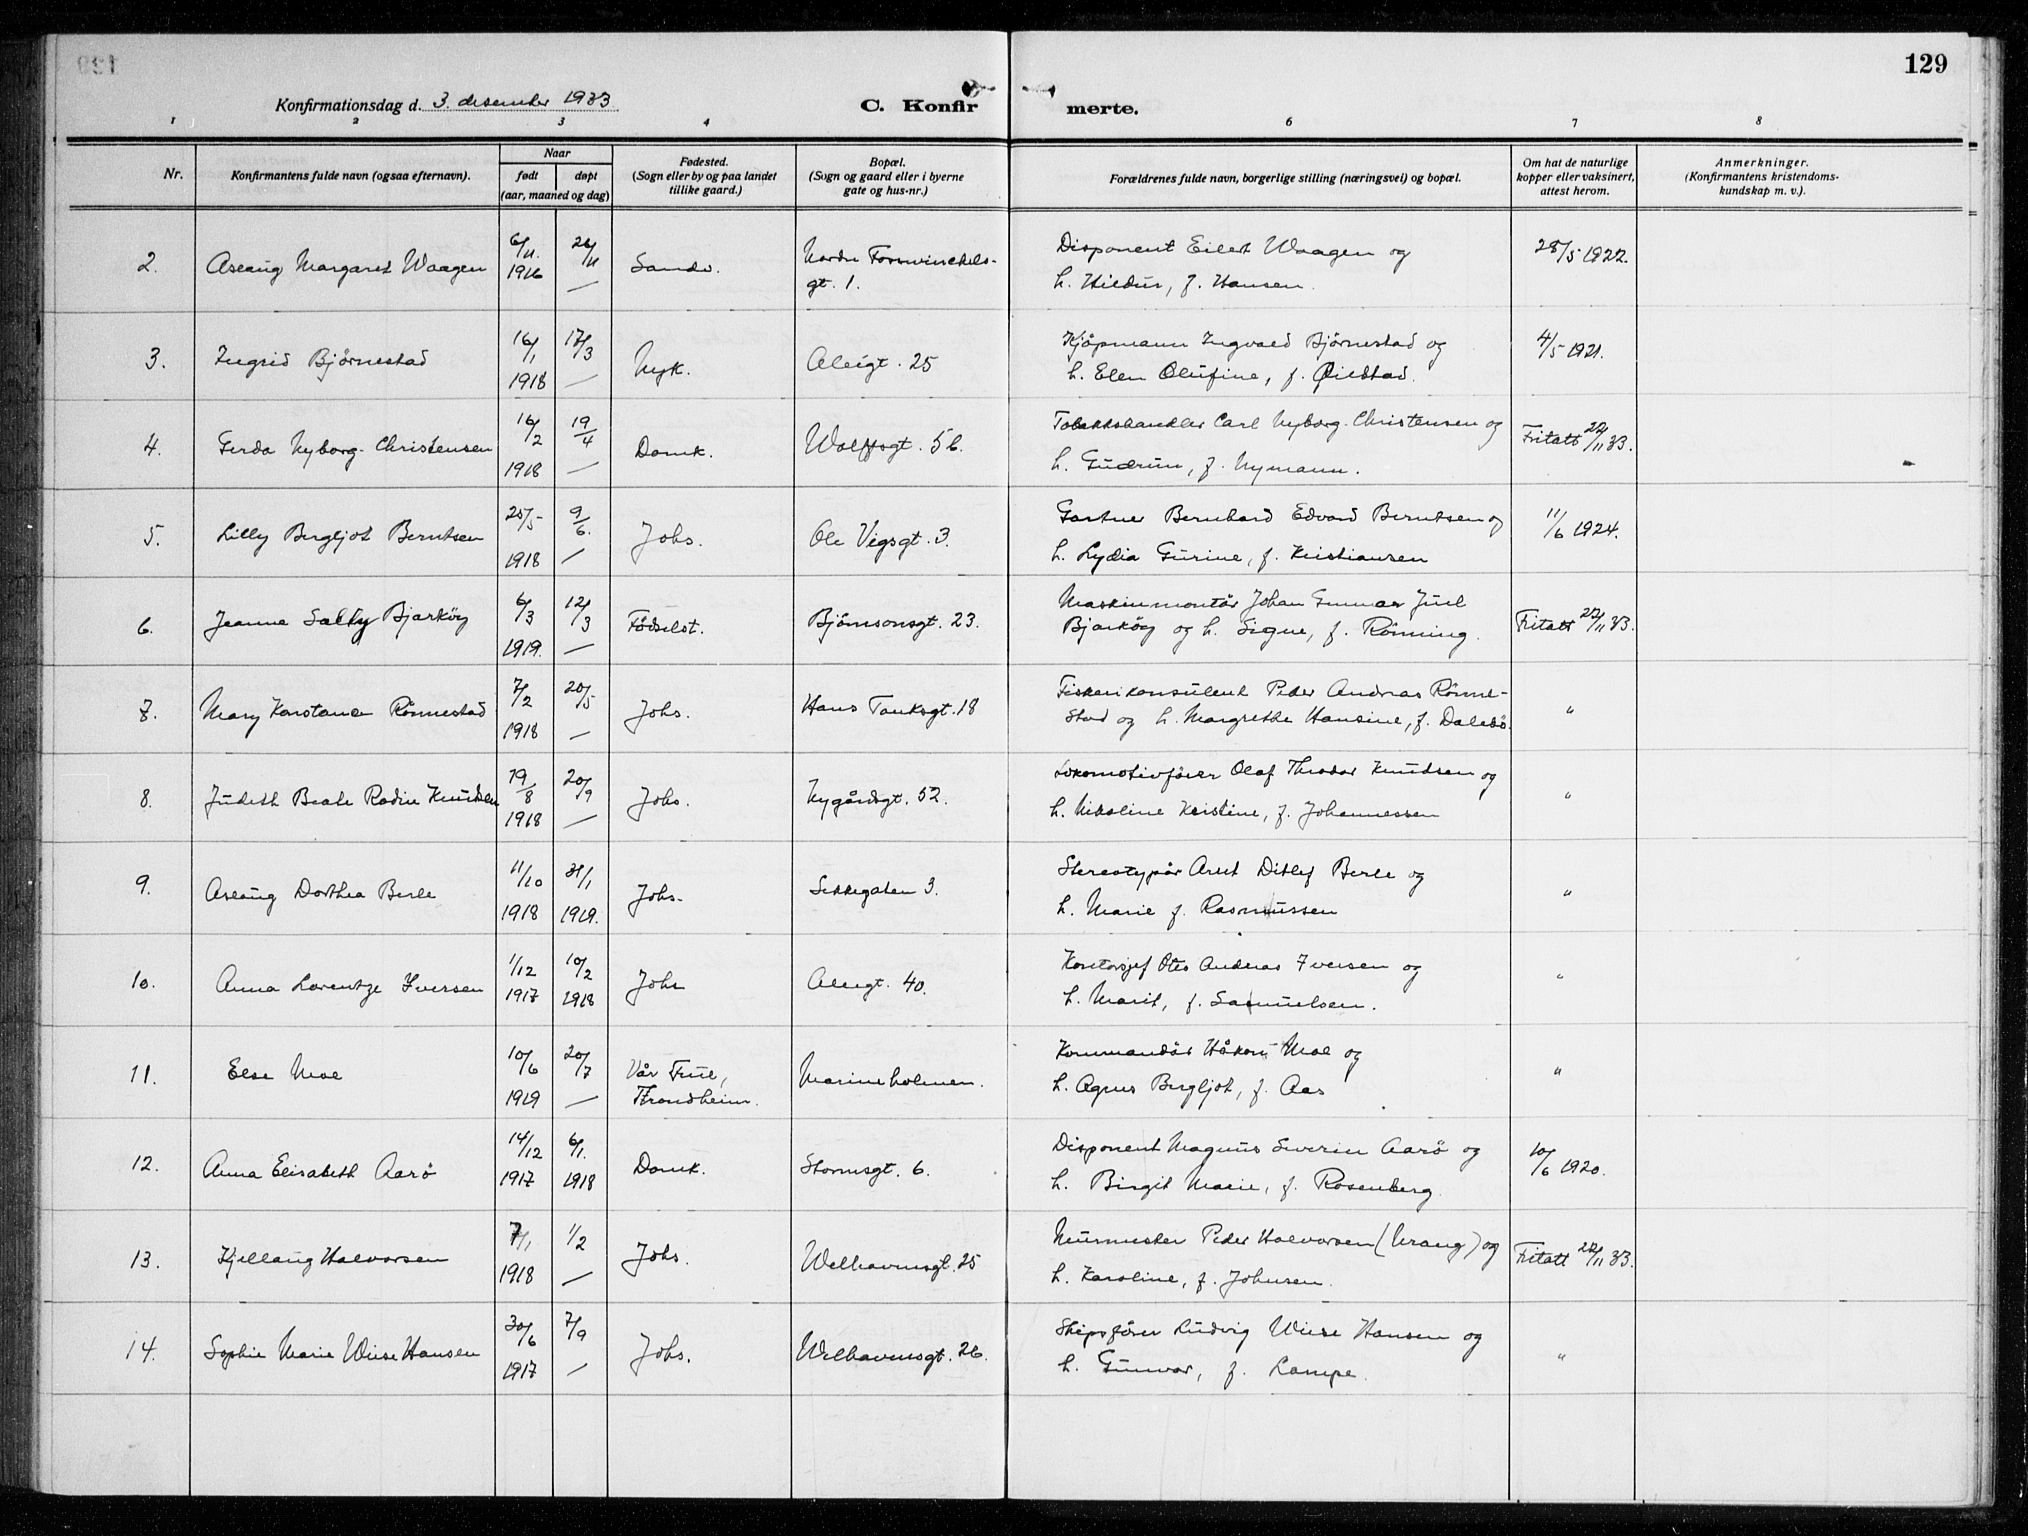 129
Konfirmationsdag d. 3. desember 1933
C. Konfirmerte.
1 2 3 4 6 7 8
Nr.
Konfirmantens fulde navn (ogsaa efternavn).
Naar
født døpt
(aar, maaned og dag)
Fødested.
(Sogn eller by og paa landet
tillike gaard.)
Bopæl.
(Sogn og gaard eller i byerne
gate og hus-nr.)
Forældrenes fulde navn, borgerlige stilling (næringsvei) og bopæl.
Om hat de naturlige
kopper eller vaksinert,
attest herom.
Anmerkninger.
(Konfirmantens kristendoms-
kundskap m. v.).
2. Aslaug Margaret Waagen 6/11. 1916 26/11 — Sandv. Nordre Forswinckels-
gt. 1.
Disponent Eilert Waagen og
h. Hildur, f. Hansen.
28/5 1922.
3. Ingrid Bjørnestad 16/1 1918 17/3 — Nyk. Allégt. 25
Kjøpmann Ingvald Bjørnestad og
h. Elen Olufine, f. Øildstad.
4/5 1921.
4. Gerda Nyborg-Christensen 16/2 1918 19/4 — Domk. Wolffsgt. 5b.
Tobakkshandler Carl Nyborg-Christensen og
h. Gudrun, f. Nymann.
Fritatt 22/11 33.
5. Lilly Bergljot Berntsen 25/5 1918 9/6. — Johs. Ole Vigsgt. 3.
Gartner Bernhard Edvard Berntsen og
h. Lydia Gurine, f. Kristiansen
11/6 1924.
6. Jeanne Sally Bjarköy 6/3 1919. 12/3 — Födselst. Björnsonsgt. 23.
Maskinmontör Johan Gunnar Juul
Bjarköy og h. Signe, f. Rönning.
Fritatt 22/11 33.
7. Mary Konstance Rönnestad 7/2 1918 20/5 — Johs. Hans Tanksgt. 18
Fiskerikonsulent Peder Andreas Rönne-
stad og h. Margrethe Hansine, f. Dalebö.
"
8. Judith Beate Rodin Knudsen 19/8 1918 20/9 — Johs. Nygårdsgt. 52.
Lokomotivförer Olaf Theodor Knudsen og
h. Nikoline Kristine, f. Johannessen
"
9. Aslaug Dorthea Berle 11/10 1918 31/1 1919. Johs. Sekkegaten 3.
Stereotypör Arnt Ditlef Berle og
h. Marie f. Rasmussen
"
10. Anna Lorentze Iversen 1/12 1917 10/2 1918 Johs Allégt. 40.
Kontorsjef Otto Andreas Iversen og
h. Marit, f. Samuelsen.
"
11. Else Moe 10/6 1919 20/7 — Vår Frue,
Trondheim. Marineholmen.
Kommandör Håkon Moe og
h. Agnes Bergljot, f. Aas
"
12. Anna Elisabeth Aarö 14/12 1917 6/1. 1918 Domk. Stormsgt. 6.
Disponent Magnus Severin Aarö og
h. Birgit Marie, f. Rosenberg.
10/6 1920.
13. Kjellaug Halvorsen 7/1 1918 1/2 — Johs. Welhavensgt. 25
Murmester Peder Halvorsen (Vrang) og
h. Karoline, f. Johnsen.
Fritatt 22/11 33.
14. Sophie Marie Wiese Hansen 30/6 1917 7/9 — Johs. Welhavensgt. 26.
Skipsförer Ludvig Wiese Hansen og
h. Gunvor, f. Lampe.
"